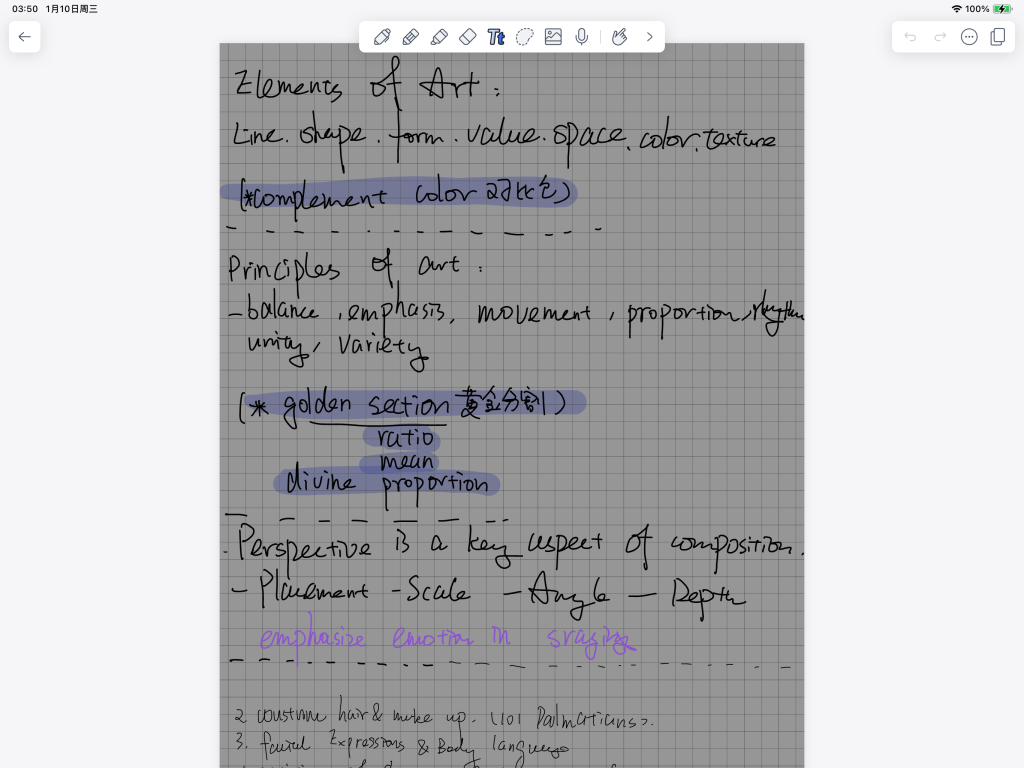 03:50 1月10日周三
100%
Tt
Elements of Art :
Line. shape. form. value. space. color. texture
(*complement color 对比色)
Principles of art :
- balance, emphasis, movement, proportion, rhythm
unity, variety
(* golden section 黄金分割)
ratio
mean
divine proportion
. Perspective is a key aspect of composition.
- Placement - Scale - Angle - Depth
emphasize emotion in
2. coustume hair & make up. <101 Dalmatians>.
3. facial Expressions & Body language